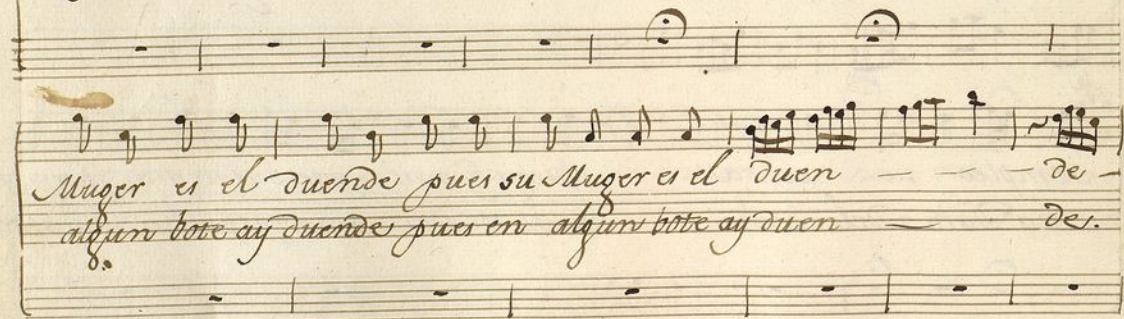 Muger es el duende pues su Muger es el duen - - - de -
algun bote ay duende pues en algun bote ay duen — des.